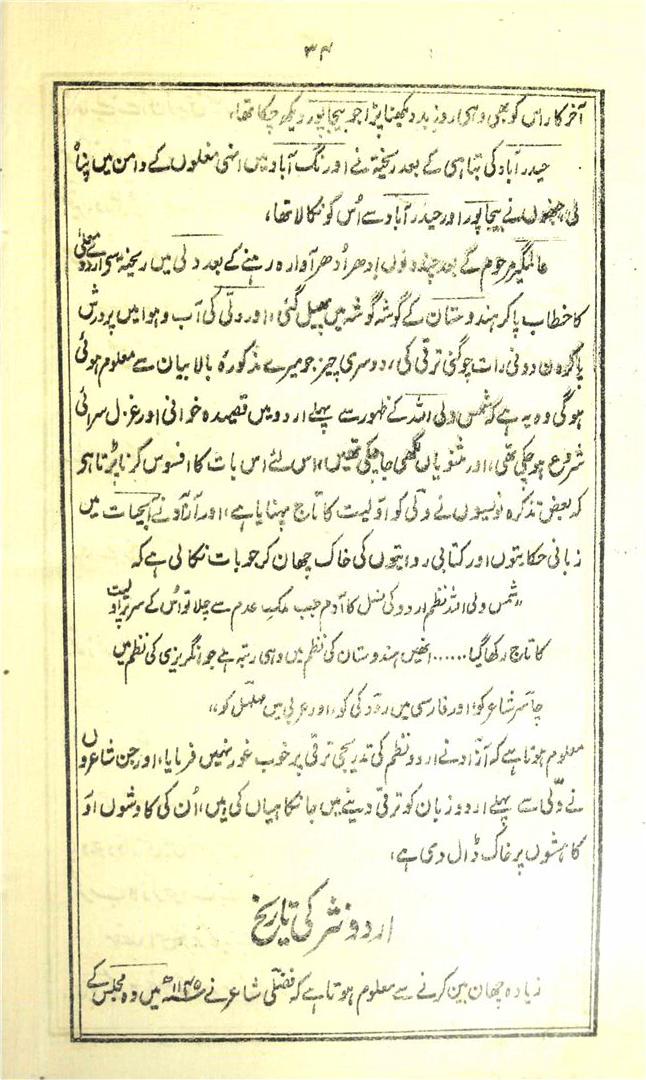 ۳۴
آخر کار اس کو بھی وہی روز بد دیکھنا پڑا جو بیجاپور دیکھ چکا تھا،
حیدر آباد کی تباہی کے بعد ریختہ نے اورنگ آباد میں انہی مغلوں کے دامن میں پناہ
لی، جنھوں نے بیجاپور اور حیدر آباد سے اُس کو نکالا تھا،
عالمگیر مرحوم کے بعد چند دنوں اِدھر اُدھر آوارہ رہنے کے بعد دلی میں ریختہ سے اردوے معلی
کا خطاب پاکر ہندوستان کے گوشہ گوشہ میں پھیل گئی، اور دلّی کی آب و ہوا میں پرورش
پاکر دن دونی رات چوگنی ترقی کی، دوسری چیز جو میرے مذکورۂ بالا بیان سے معلوم ہوئی
ہوگی وہ یہ ہے کہ شمس ولی اللہ کے ظہور سے پہلے اردو میں قصیدہ خوانی اور غزل سرائی
شروع ہو چکی تھی، اور مثنویاں لکھی جا چکی تھیں، اس لئے اس بات کا افسوس کرنا پڑتا ہی
کہ بعض تذکرہ نویسوں نے ولی کو اوّلیت کا تاج پہنایا ہے، اور آزاد نے آبحیات میں
زبانی حکایتوں اور کتابی روایتوں کی خاک چھان کر جو بات نکالی ہے کہ
"شمس ولی اللہ نظم اردو کی نسل کا آدم جب ملک عدم سے چلا تو اُس کے سر پر اولیت
کا تاج رکھا گیا...... انھیں ہندوستان کی نظم میں وہی رتبہ ہے جو انگریزی کی نظم میں
چاسر شاعر کو، اور فارسی میں رودکی کو، اور عربی میں مہلہل کو"
معلوم ہوتا ہے کہ آزاد نے اردو نظم کی تدریجی ترقی پر خوب غور نہیں فرمایا، اور جن شاعروں
نے ولّی سے پہلے اردو زبان کو ترقی دینے میں جانکاہیاں کی ہیں، اُن کی کاوشوں اور
کاہشوں پر خاک ڈال دی ہے،
اردو نثر کی تاریخ
زیادہ چھان بین کرنے سے معلوم ہوتا ہے کہ فضلی شاعر نے ۱۱۴۵ھ میں وہ مجلس کے